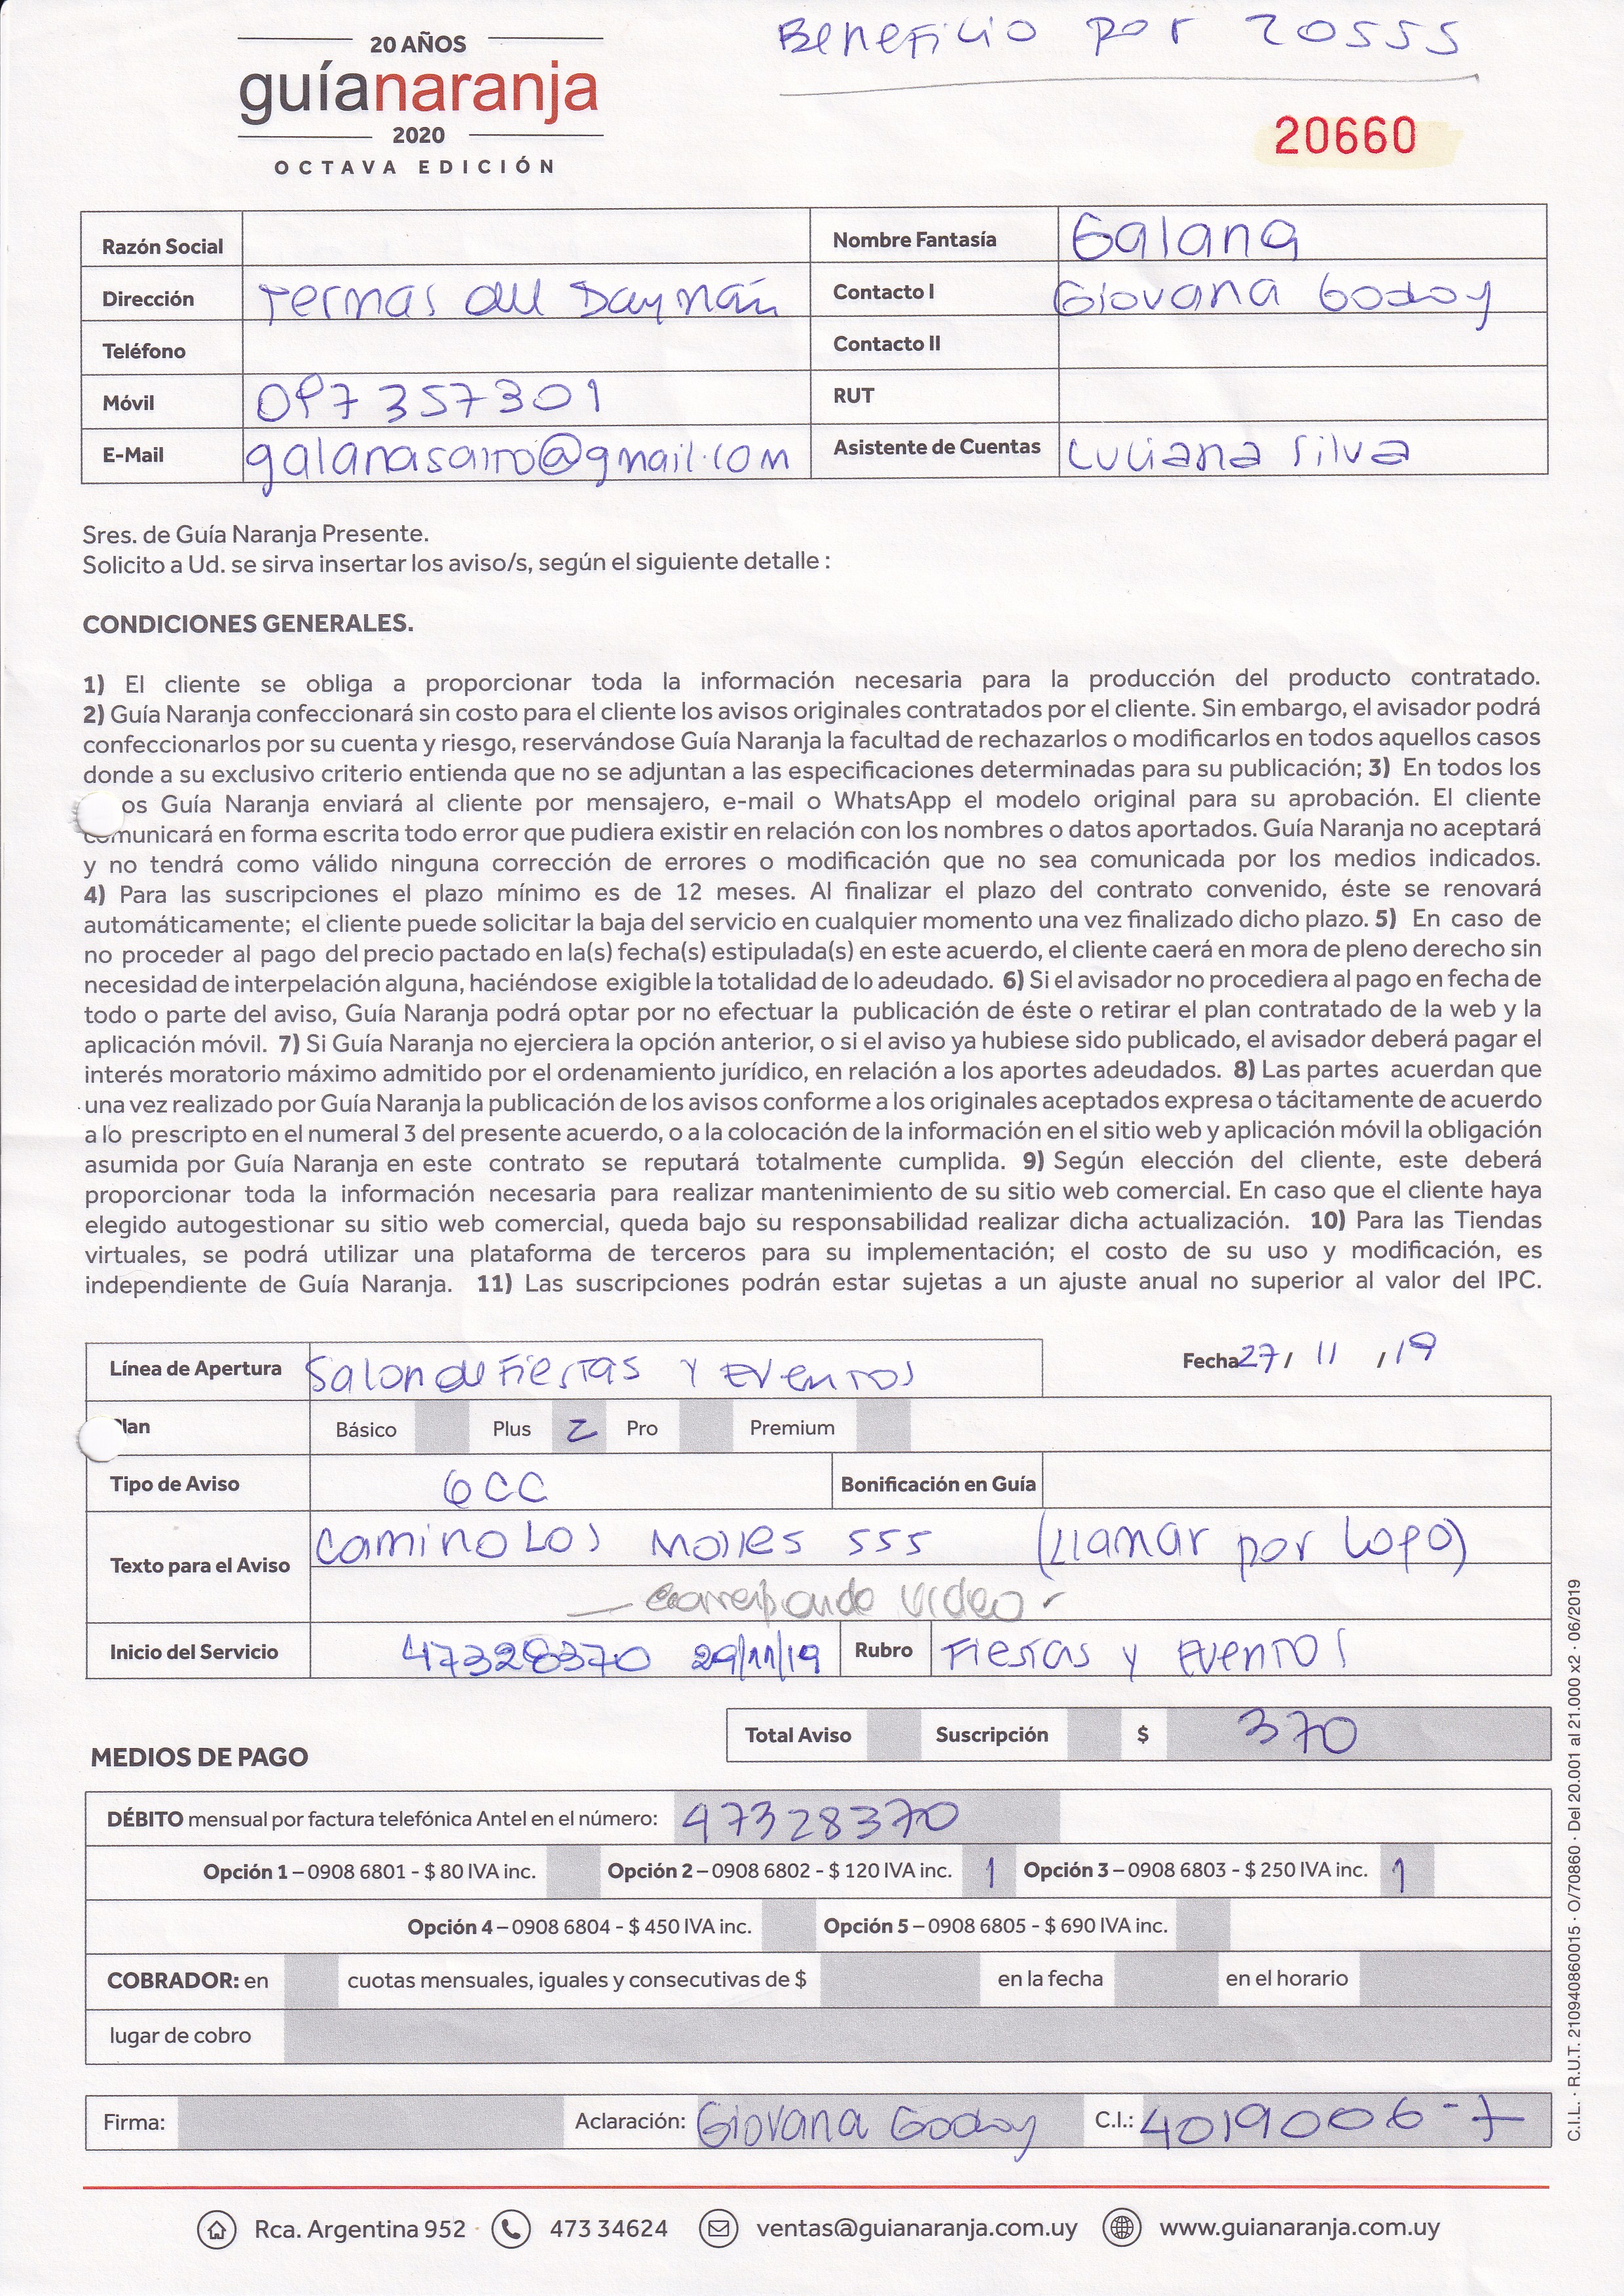 Beneficio por 20555
20 AÑOS
guíanaranja
2020
OCTAVA EDICIÓN
20660
Razón Social
Nombre Fantasía Galana
Dirección Termas del Daymán
Contacto I Giovana Godoy
Teléfono
Contacto II
Móvil 097 357301
RUT
E-Mail galanasalto@gmail.com
Asistente de Cuentas Luciana Silva
Sres. de Guía Naranja Presente.
Solicito a Ud. se sirva insertar los aviso/s, según el siguiente detalle :
CONDICIONES GENERALES.
1) El cliente se obliga a proporcionar toda la información necesaria para la producción del producto contratado.
2) Guía Naranja confeccionará sin costo para el cliente los avisos originales contratados por el cliente. Sin embargo, el avisador podrá
confeccionarlos por su cuenta y riesgo, reservándose Guía Naranja la facultad de rechazarlos o modificarlos en todos aquellos casos
donde a su exclusivo criterio entienda que no se adjuntan a las especificaciones determinadas para su publicación; 3) En todos los
os Guía Naranja enviará al cliente por mensajero, e-mail o WhatsApp el modelo original para su aprobación. El cliente
comunicará en forma escrita todo error que pudiera existir en relación con los nombres o datos aportados. Guía Naranja no aceptará
y no tendrá como válido ninguna corrección de errores o modificación que no sea comunicada por los medios indicados.
4) Para las suscripciones el plazo mínimo es de 12 meses. Al finalizar el plazo del contrato convenido, éste se renovará
automáticamente; el cliente puede solicitar la baja del servicio en cualquier momento una vez finalizado dicho plazo. 5) En caso de
no proceder al pago del precio pactado en la(s) fecha(s) estipulada(s) en este acuerdo, el cliente caerá en mora de pleno derecho sin
necesidad de interpelación alguna, haciéndose exigible la totalidad de lo adeudado. 6) Si el avisador no procediera al pago en fecha de
todo o parte del aviso, Guía Naranja podrá optar por no efectuar la publicación de éste o retirar el plan contratado de la web y la
aplicación móvil. 7) Si Guía Naranja no ejerciera la opción anterior, o si el aviso ya hubiese sido publicado, el avisador deberá pagar el
interés moratorio máximo admitido por el ordenamiento jurídico, en relación a los aportes adeudados. 8) Las partes acuerdan que
una vez realizado por Guía Naranja la publicación de los avisos conforme a los originales aceptados expresa o tácitamente de acuerdo
a lo prescripto en el numeral 3 del presente acuerdo, o a la colocación de la información en el sitio web y aplicación móvil la obligación
asumida por Guía Naranja en este contrato se reputará totalmente cumplida. 9) Según elección del cliente, este deberá
proporcionar toda la información necesaria para realizar mantenimiento de su sitio web comercial. En caso que el cliente haya
elegido autogestionar su sitio web comercial, queda bajo su responsabilidad realizar dicha actualización. 10) Para las Tiendas
virtuales, se podrá utilizar una plataforma de terceros para su implementación; el costo de su uso y modificación, es
independiente de Guía Naranja. 11) Las suscripciones podrán estar sujetas a un ajuste anual no superior al valor del IPC.
Línea de Apertura Salon de Fiestas y Eventos
Fecha 27 / 11 / 19
Plan Básico Plus 2 Pro Premium
Tipo de Aviso 6CC Bonificación en Guía
Texto para el Aviso Camino Los Molles 555 (Llamar por Logo)
— Corresponde video -
Inicio del Servicio 47328370 29/11/19 Rubro Fiestas y Eventos
Total Aviso Suscripción $ 370
MEDIOS DE PAGO
DÉBITO mensual por factura telefónica Antel en el número: 47328370
Opción 1 – 0908 6801 - $ 80 IVA inc. Opción 2 – 0908 6802 - $ 120 IVA inc. 1 Opción 3 – 0908 6803 - $ 250 IVA inc. 1
Opción 4 – 0908 6804 - $ 450 IVA inc. Opción 5 – 0908 6805 - $ 690 IVA inc.
COBRADOR: en cuotas mensuales, iguales y consecutivas de $ en la fecha en el horario
lugar de cobro
Firma: Aclaración: Giovana Godoy C.I.: 4019006-7
Rca. Argentina 952 473 34624 ventas@guianaranja.com.uy www.guianaranja.com.uy
C.I.L. · R.U.T. 210940860015 · O/70860 · Del 20.001 al 21.000 x2 · 06/2019